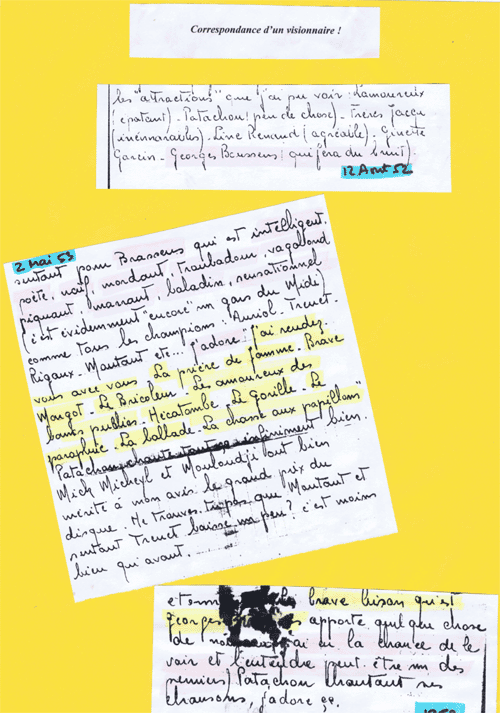 Correspondance d'un visionnaire !
les "attractions" que j'ai pu voir. Lamoureux
(épatant). Patachou (peu de chose). Frères Jacqu
inénarrables). Line Renaud (agréable). Ginette
Garcin. Georges Brassens (qui fera du bruit)
12 Août 52
2 mai 53
surtout pour Brassens qui est intelligent.
poète, neuf, mordant, troubadour, vagabond
piquant, marrant, baladin, sensationnel
(c'est évidemment "encore" un gars du Midi)
comme tous les champions. Auriol. Trenet.
Rigaux. Montant etc... j'adore "j'ai rendez-
vous avec vous. La prière de femme. Brave
Margot. Le Bricoleur. Les amoureux des
bancs publics. Hécatombe. Le gorille. Le
parapluie. La ballade. La chasse aux papillons"
Patachou chante tout ça infiniment bien.
Mick Micheyl et Mouloudji ont bien
mérité à mon avis le grand prix du
disque. Ne trouves-tu pas que Montant et
surtout Trenet baisse un peu ? c'est moins
bien qu'avant.
brave bison qu'est
georges apporte quelque chose
de j'ai eu la chance de le
voir et l'entendre peut-être un des
premiers) Patachou chantant ses
chansons, j'adore ça.